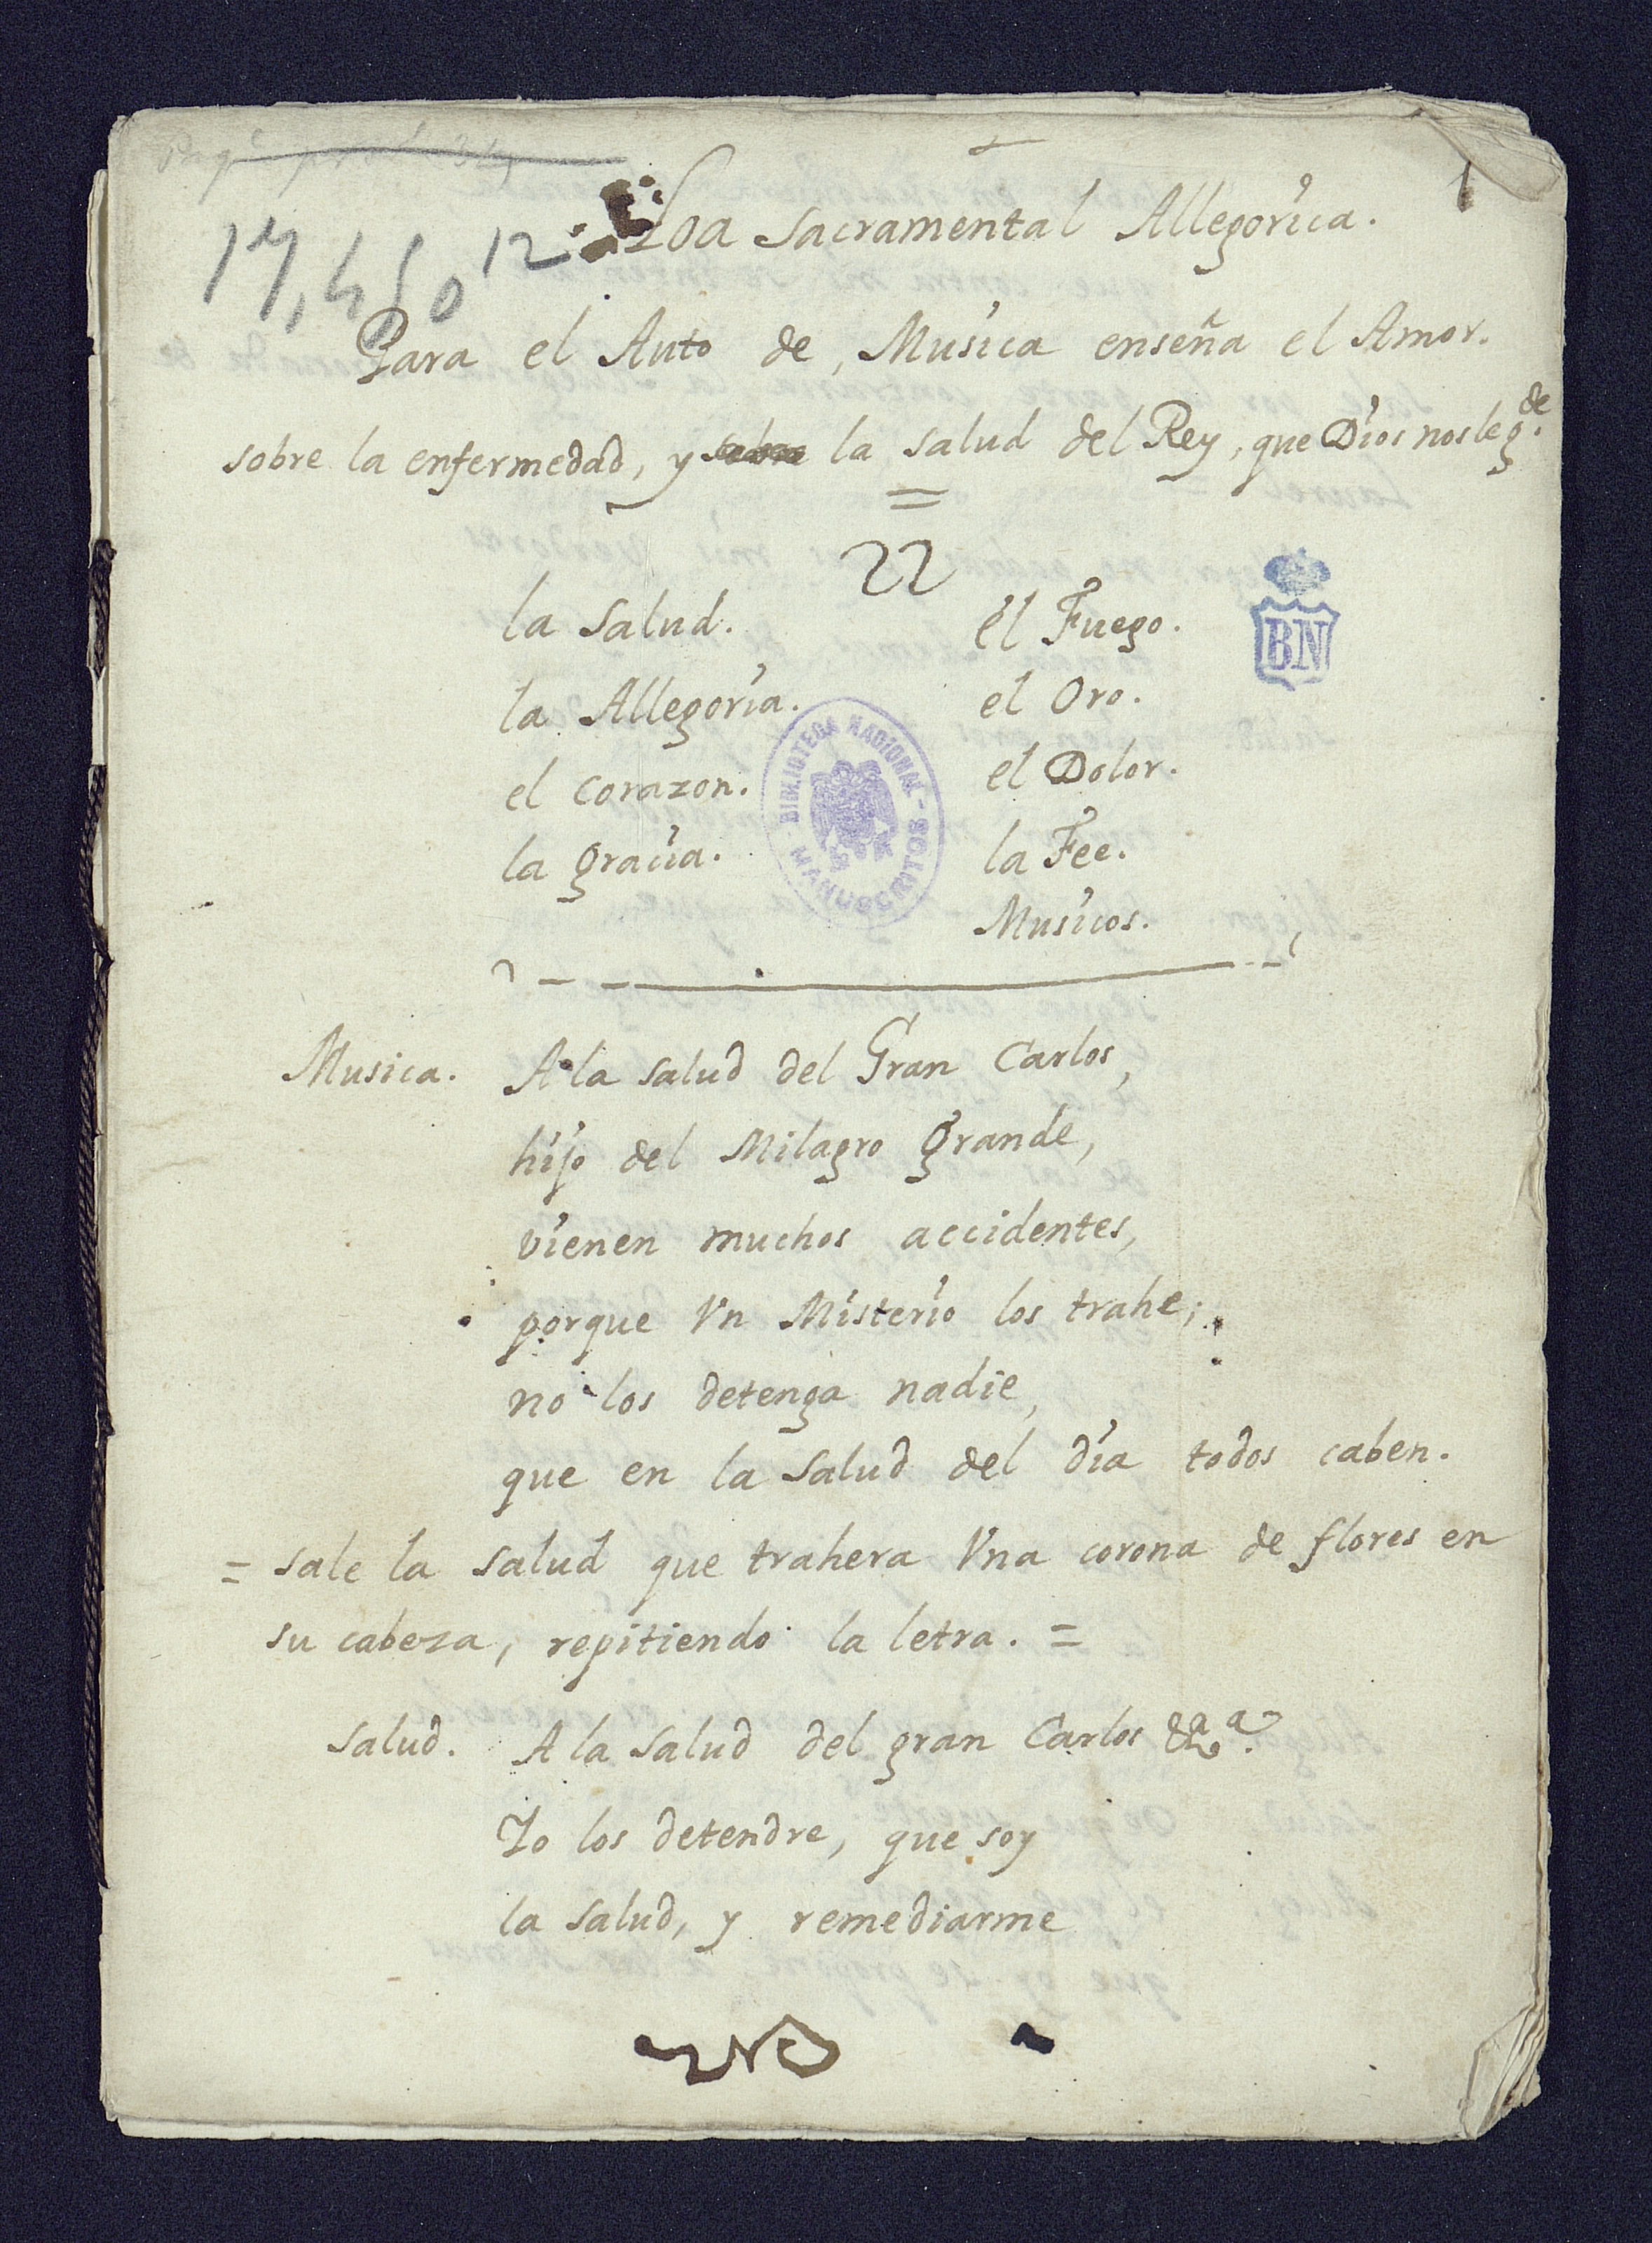 1
17,450 12
Loa Sacramental Allegorica.
Para el Auto de, Musica enseña el Amor.
sobre la enfermedad, y sobre la salud del Rey, que Dios nos le g.de
=
la Salud.
la Allegoria.
el Corazon.
la gracia.
el Fuego.
el Oro.
el Dolor.
la Fee.
Musicos.
BN
BIBLIOTECA NACIONAL
MANUSCRITOS
Musica. A la salud del Gran Carlos,
hijo del Milagro grande,
vienen muchos accidentes,
porque Vn Misterio los trahe;
no los detenga nadie,
que en la salud del dia todos caben.
= sale la salud que trahera Vna corona de flores en
su cabeza, repitiendo la letra. =
Salud. A la salud del gran Carlos &a.
Yo los detendre, que soy
la salud, y remediarme